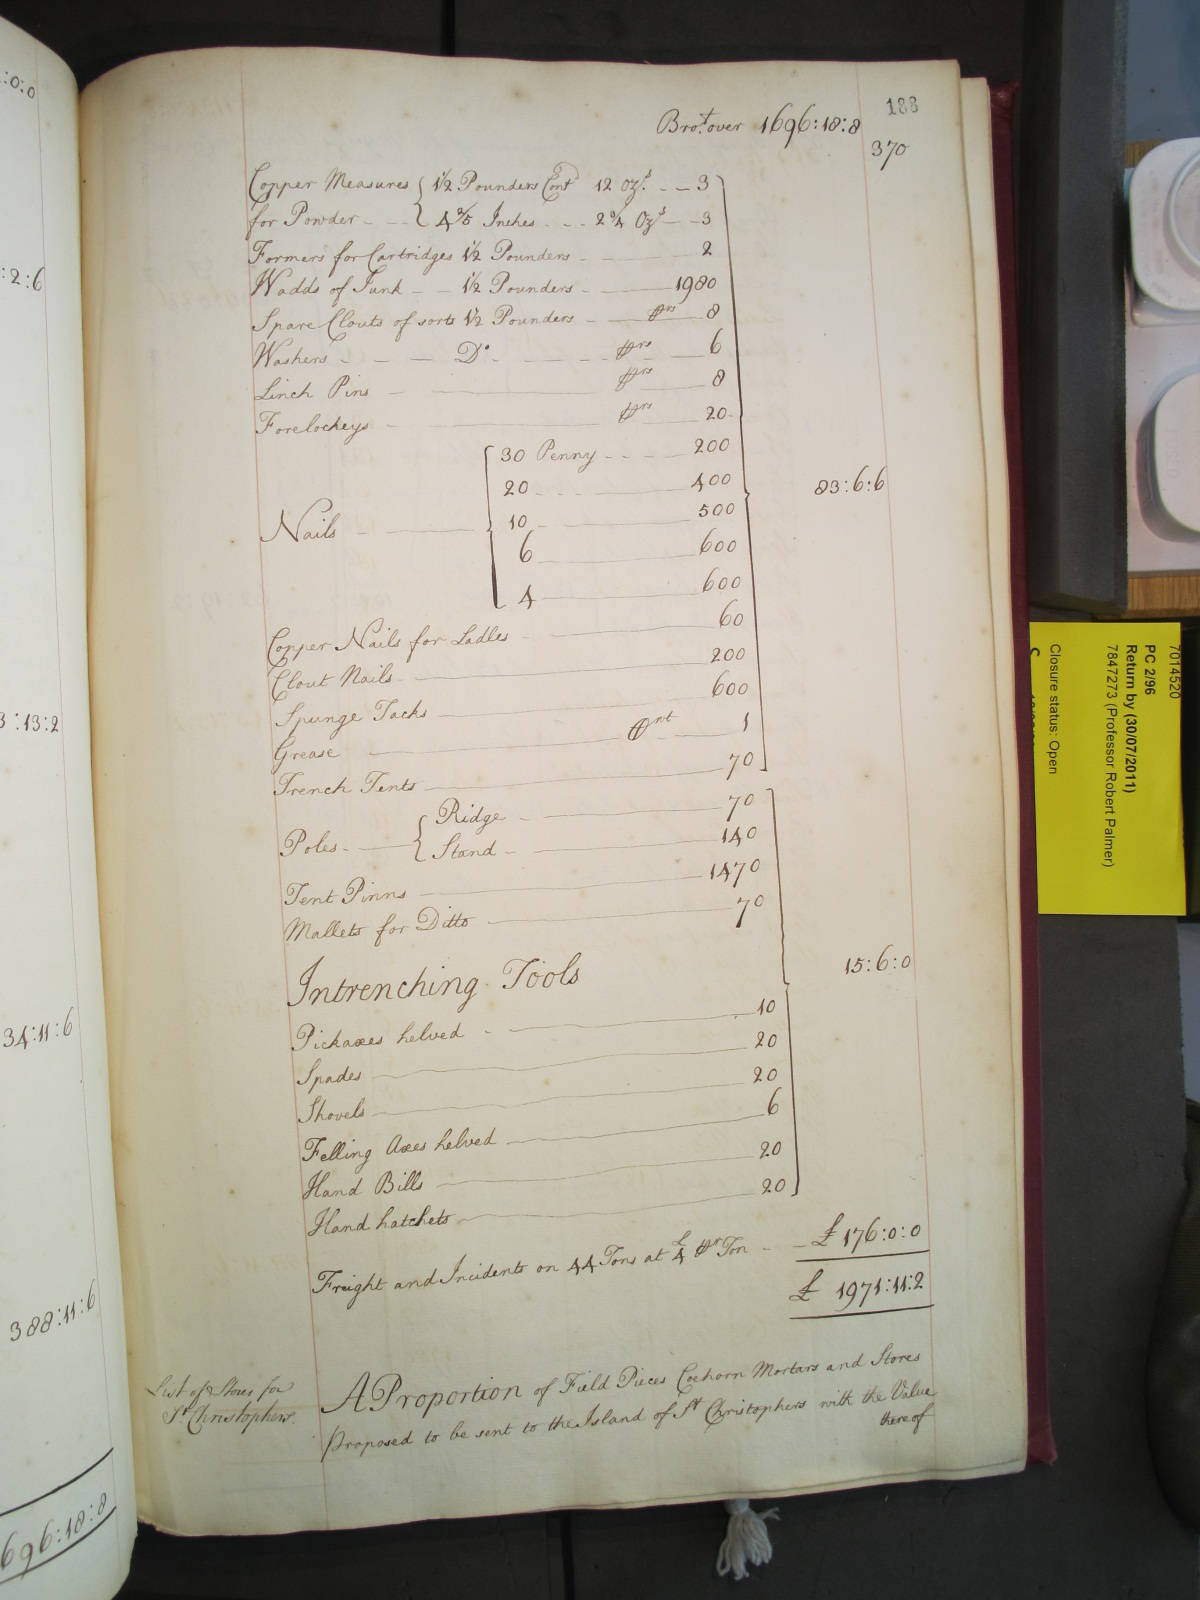 188
Bro.t over 1696:18:8
370
Copper Measures { 1½ Pounders Cont 12 Ozs. - - 3
for Powder - - - { 4⅖ Inches - - - 2¾ Ozs - - 3
Formers for Cartridges 1½ Pounders - 2
Wadds of Junk - - 1½ Pounders - 1980
Spare Clouts of sorts 1½ Pounders - prs 8
Washers - - - Do. - - - prs 6
Linch Pins - prs 8
Forelockeys - prs 20
Nails { 30 Penny - - - 200
20 - - 400
10 - 500
6 600
4 600
83:6:6
Copper Nails for Ladles - 60
Clout Nails - 200
Spunge Tacks 600
Grease 1
Trench Tents 70
Poles - { Ridge - 70
Stand - 140
Tent Pinns 1470
Mallets for Ditto 70
Intrenching Tools
15:6:0
Pickaxes helved - 10
Spades 20
Shovels 20
Felling Axes helved 6
Hand Bills 20
Hand hatchets 20
Freight and Incidents on 44 Tons at £4 pr Ton - - £ 176:0:0
£ 1971:11:2
List of Stores for
St Christophers.
A Proportion of Field Pieces Coehorn Mortars and Stores
proposed to be sent to the Island of St Christophers with the Value
thereof
:0:0
:2:6
3:13:2
34:11:6
388:11:6
696:18:8
7014520
PC 2/96
Return by (30/07/2011)
7847273 (Professor Robert Palmer)
Closure status: Open